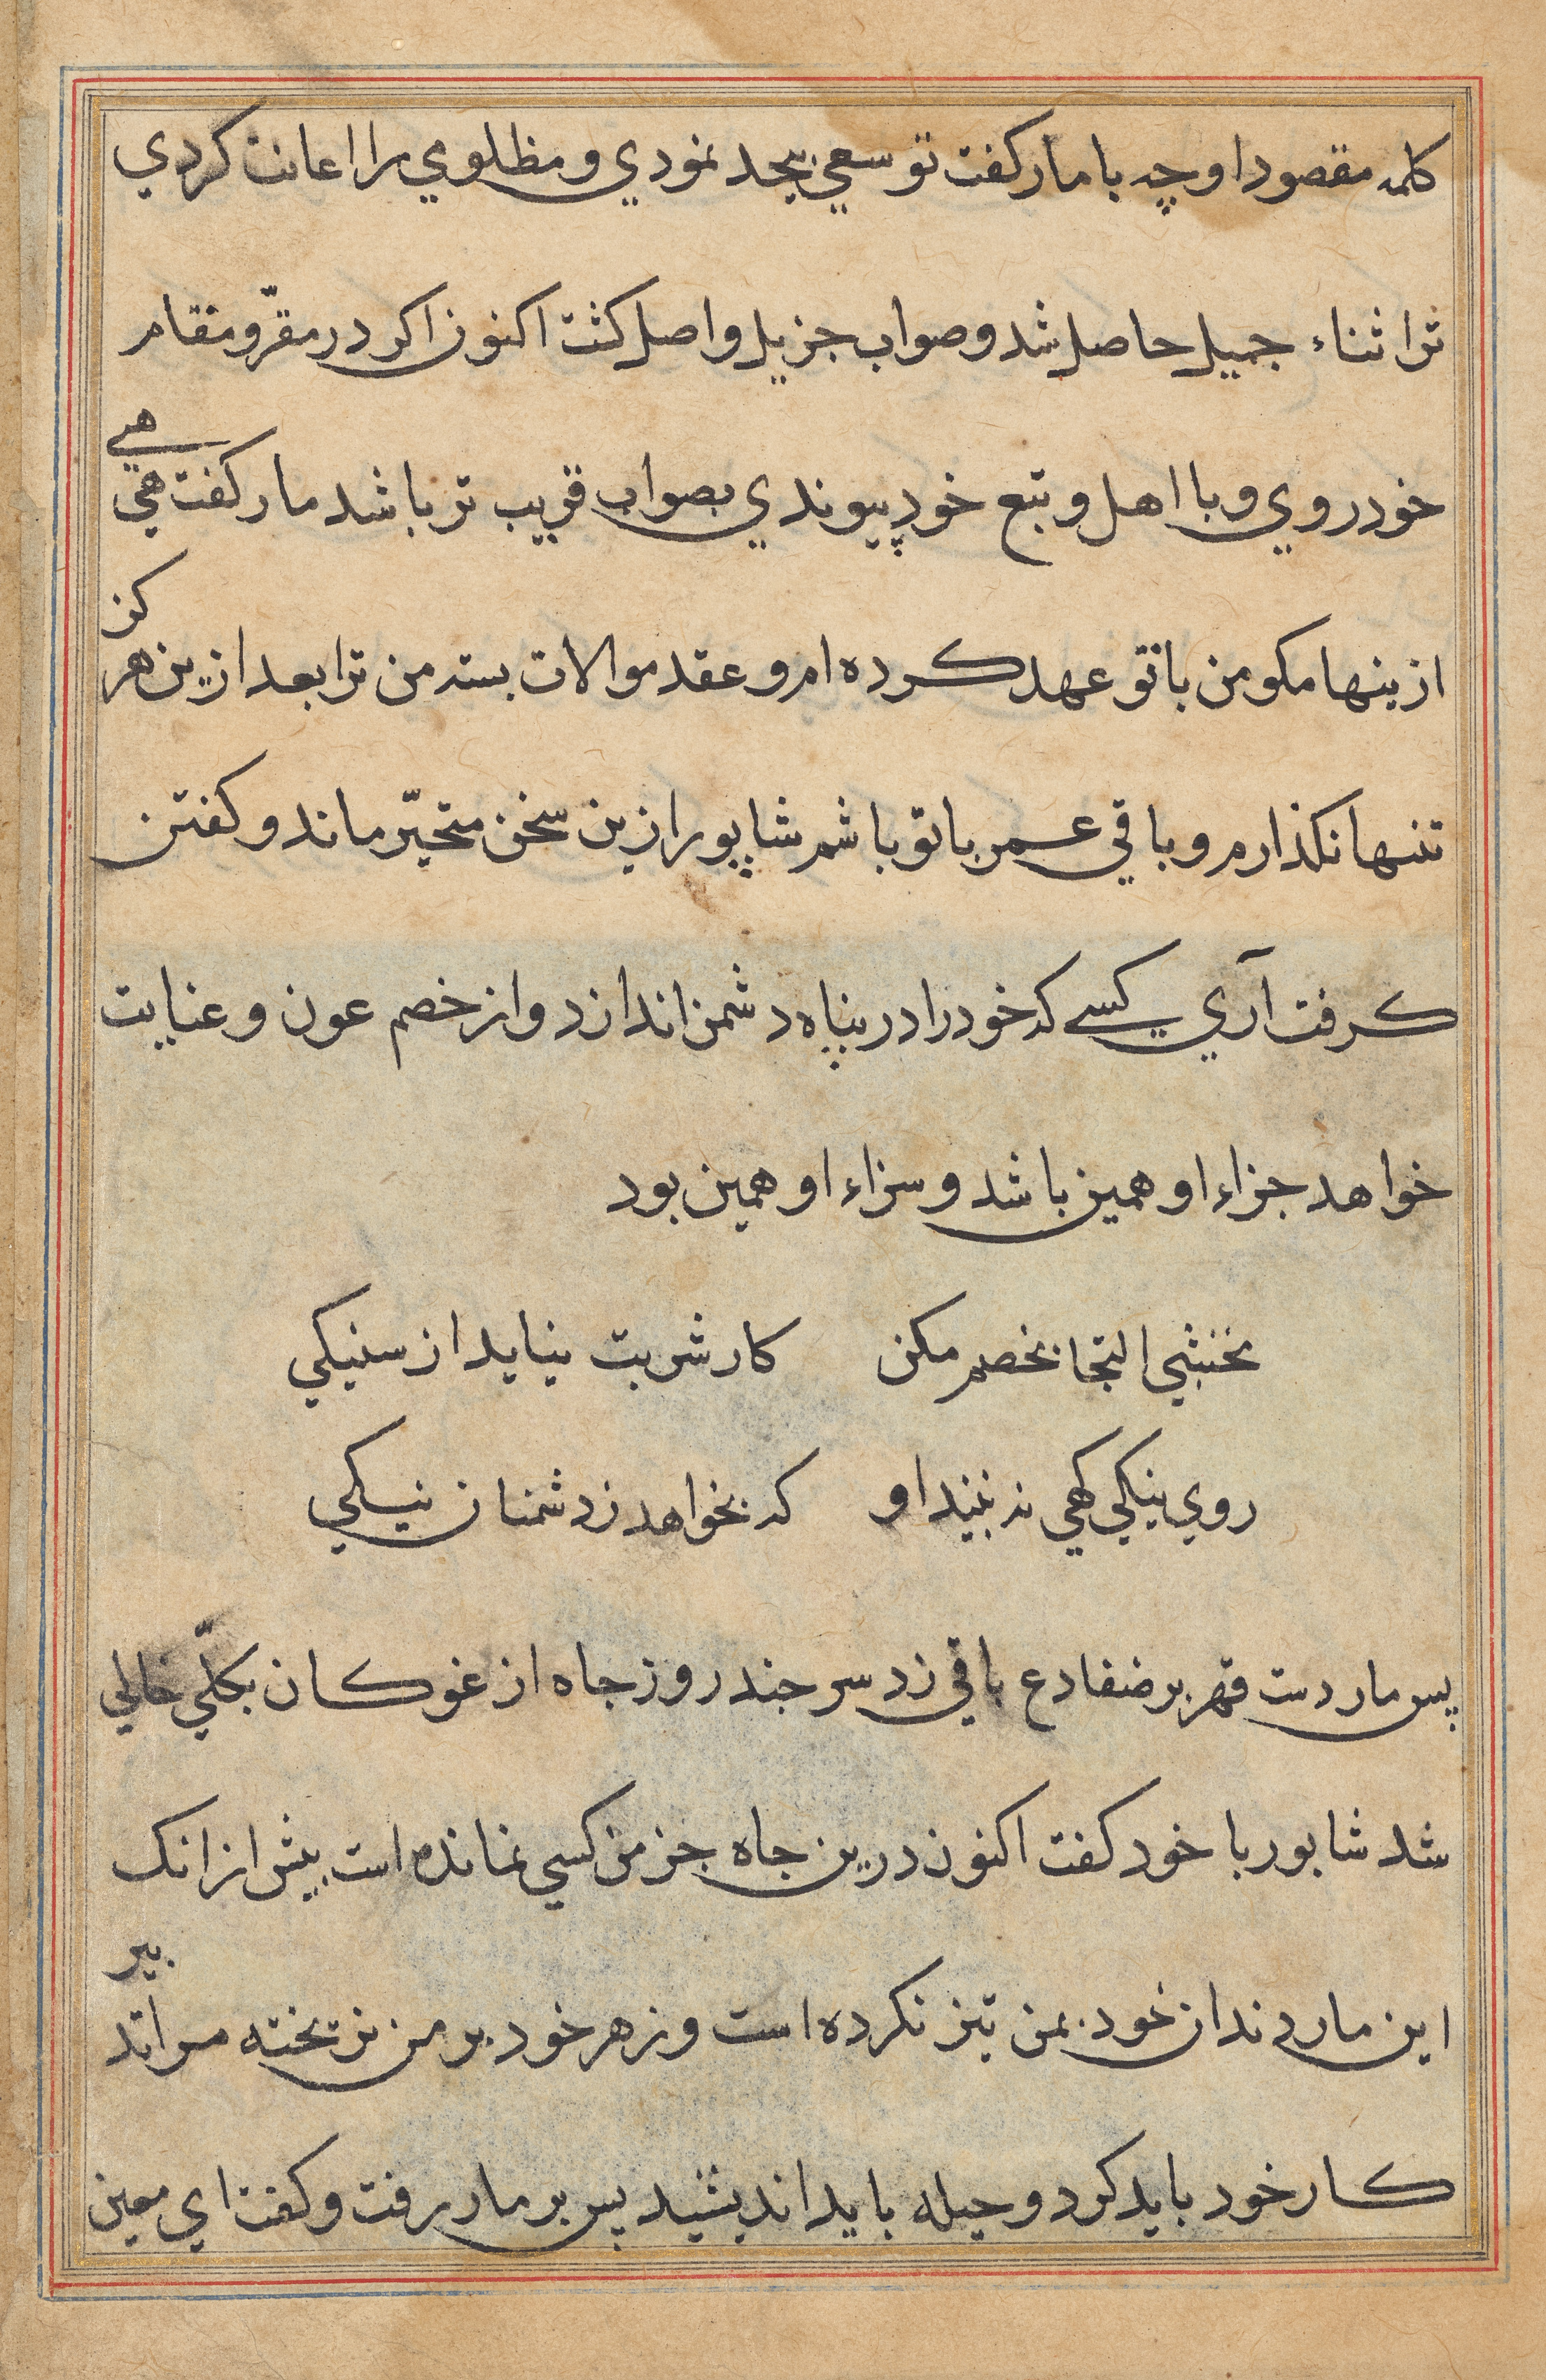 كلمه مقصود او چه با مار كفت تو سعي بيحد نمودي و مظلومي را اعانت كردي
ترا ثناء جميل حاصل شد و صواب جزيل واصل كشت اكنون اكر در مقرّ و مقام
خود روي و با اهل و تبع خود پيوندي بصواب قريب تر باشد مار كفت هي هي
ازينها مكو من با تو عهد كرده ام و عقد موالات بسته من ترا بعد ازين هركز
تنها نكذارم و باقي عمر با تو باشم شاپور ازين سخن متحيّر ماند و كفتن
كرفت آري كسي كه خود را در پناه دشمن اندازد و از خصم عون و عنايت
خواهد جزاء او همين باشد و سزاء او همين بود
نخشبي التجا بخصم مكن كار شربت نيايد از سنيكي
روي نيكي كهي نه بيند او كه بخواهد ز دشمنان نيكي
پس مار دست قهر بر ضفادع باقي زد سر جند روز جاه از غوكان بكلّي خالي
شد شابور با خود كفت اكنون درين جاه جز من كسي نمانده است پيش از انك
اين مار دندان خود بمن تيز نكرده است و زهر خود بر من نريخته مرا تدبير
كار خود بايد كرد و حيله بايد انديشيد پس بر مار رفت و كفت اي معين